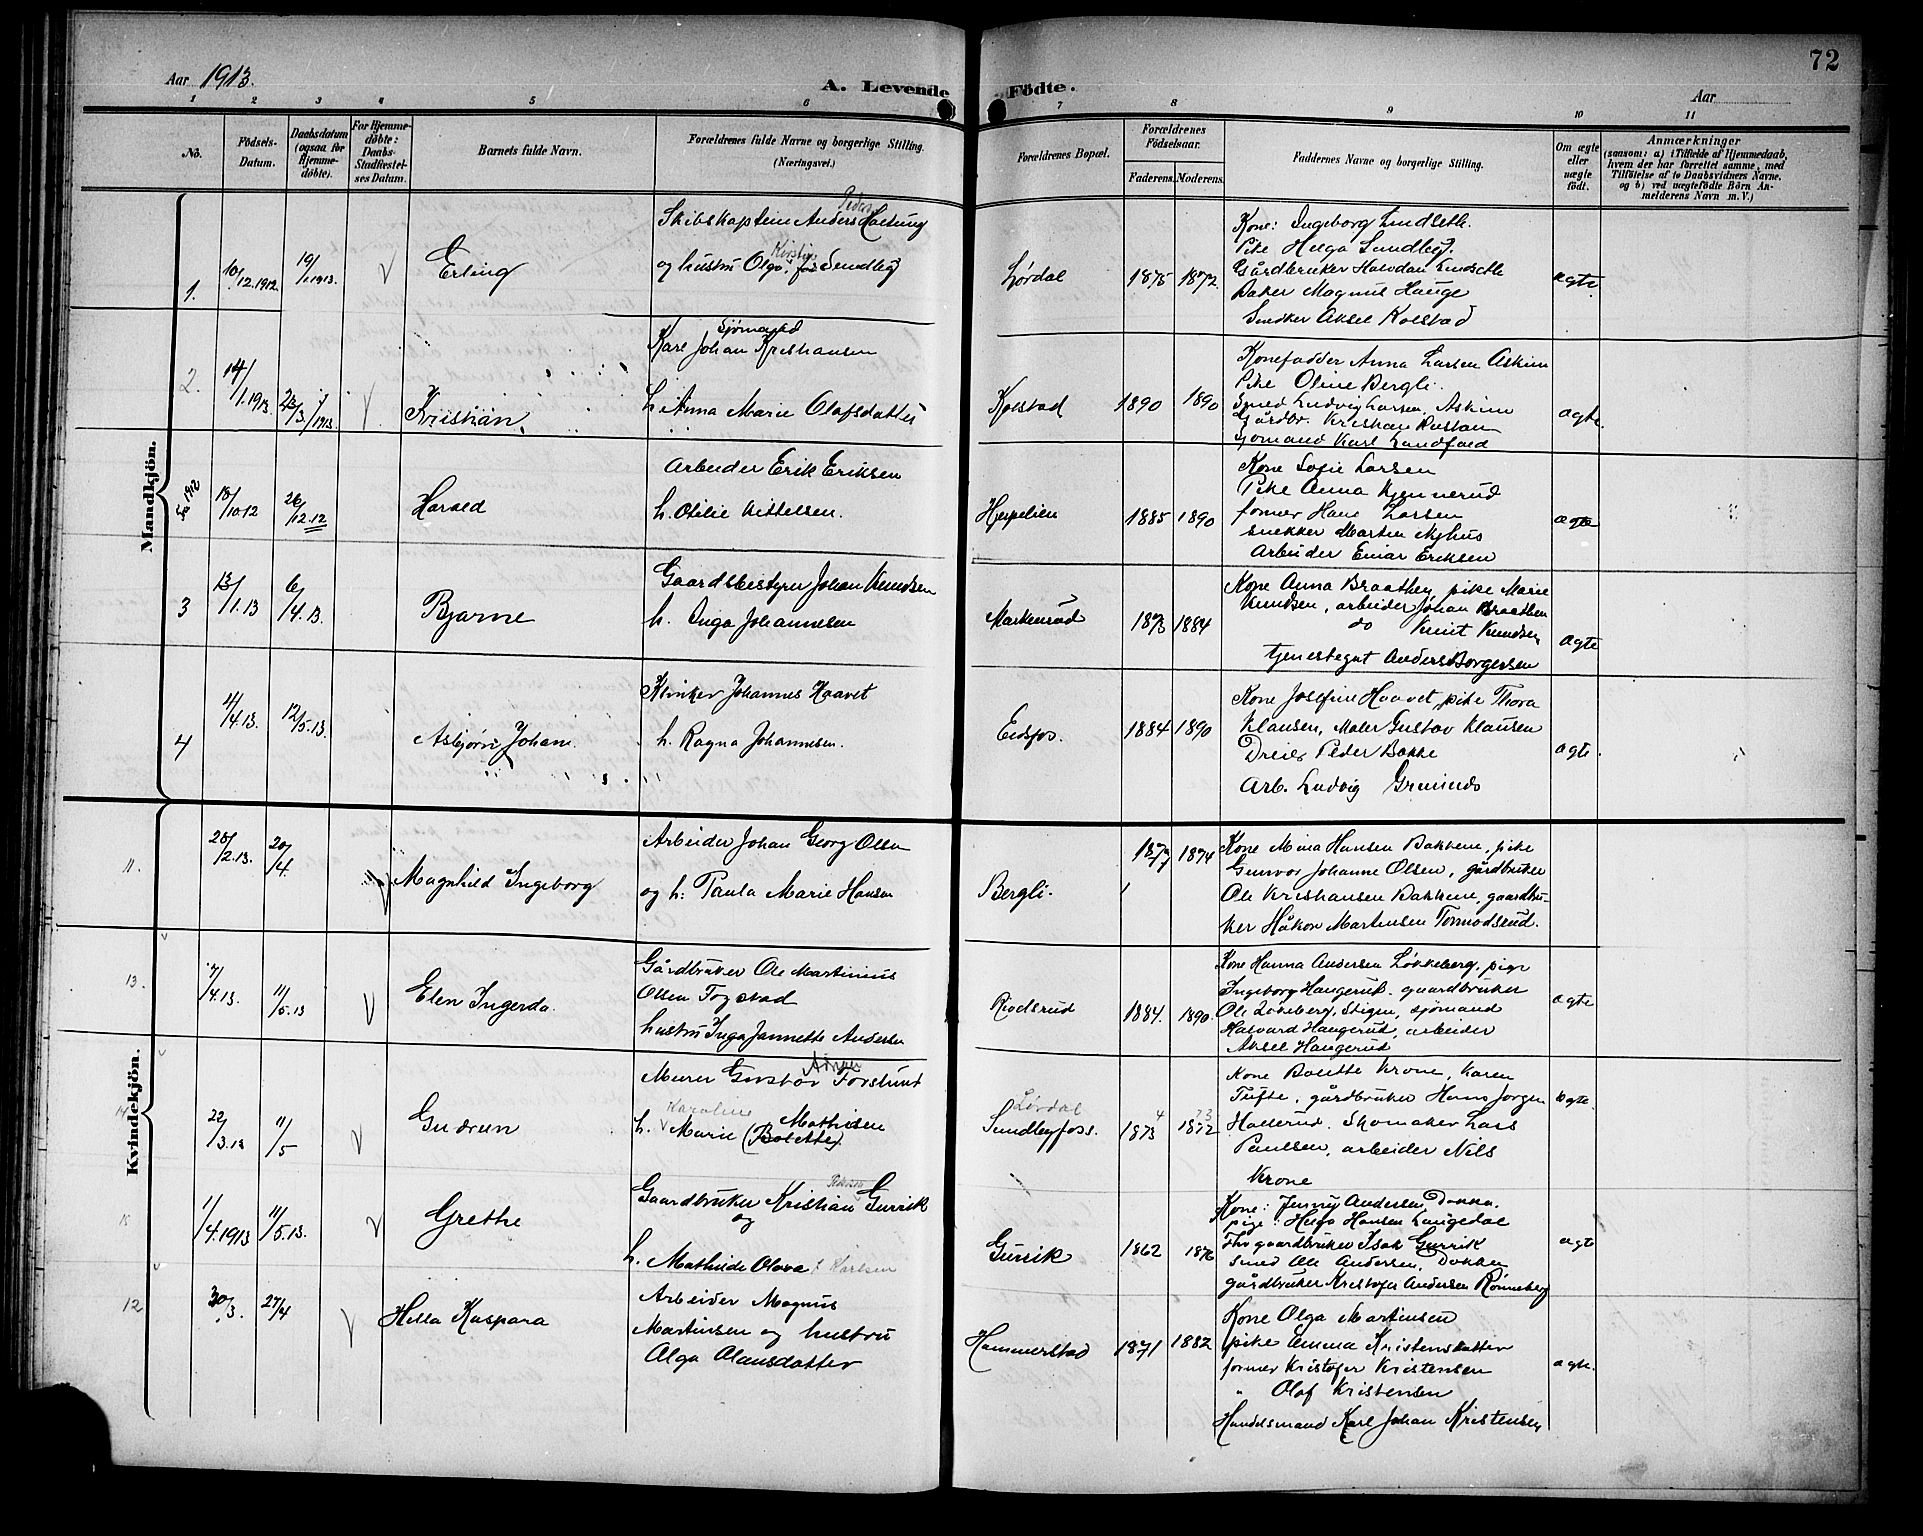 72
Aar 1913.
A. Levende
Födte.
Aar
1 2 3 4 5 6 7 8 9 10 11
No.
Födsels-
Datum.
Daabsdatum
(ogsaa for
Hjemme-
døbte).
For Hjemme-
døbte:
Daabs-
Stadfæstel-
ses Datum.
Barnets fulde Navn.
Forældrenes fulde Navne og borgerlige Stilling.
(Næringsvei.)
Forældrenes Bopæl.
Forældrenes
Födselsaar.
Faderens. Moderens.
Faddernes Navne og borgerlige Stilling.
Om ægte
eller
uægte
födt.
Anmærkninger
(saasom: a) i Tilfælde af Hjemmedaab,
hvem der har forrettet samme, med
Tilföielse af to Daabsvidners Navne,
og b) ved uægtefödte Börn An-
melderens Navn m. V.)
Mandkjön.
1.
10/12.1912
19/1.1913.
Erling
Skibskaptein Anders Holtung
og hustru Olga Sundby
Lørdal
1875 1872
Kone: Ingeborg Lindseth.
Pike Helga Sundby.
Gårdbruker Halvdan Lindseth
Baker Magnus Hauge
Snedker Aksel Kolstad
ægte
2.
14/1.1913.
23/3 1913.
Kristian
Sjømand
Karl Johan Kristiansen
h. Anna Marie Olafsdatter
Kolstad
1890 1890
Konefadder Anna Larsen Askim
Pike Oline Bergli.
Smed Ludvig Larsen, Askim
Gårdbr. Kristian
Sjømand Karl
ægte
1912
18/10 12
26/12.12
Harald
Arbeider Erik Eriksen
h. Otilie Kittelsen.
1885 1890
Kone Sofie Larsen
Pike Anna Kjennerud
former Hans Larsen
snekker Martin Nyhus
Arbeider Einar Eriksen
ægte
3
13/1.13
6/4.13.
Bjarne
Gaardsbestyrer Johan Knudsen
h. Inga Johannesen
Markerud
1873 1884
Kone Anna Braathen, pike Marie
Knudsen, arbeider Johan Braathen
do Knut Knudsen
tjenestegut Anders Borgersen
ægte
4
11/4.13.
12/5.13.
Asbjørn Johan.
Klinker Johannes Haavet
h. Ragna Johannesen.
Eidsfos.
1884 1890
Kone Josefine Haavet, pike Thora
Klausen, Maler Gustav Klausen
Dreier Peder Bakke
Arb. Ludvig
ægte.
Kvindekjön.
11.
28/2.13.
20/4.
Magnhild Ingeborg
Arbeider Johan Georg Olsen
og h. Paula Marie Hansen
Bergli.
1877 1874
Kone Mina Hansen Bakkene, pike
Gunvor Johanne Olsen, gårdbruker
Ole Kristiansen Bakkene, gaardbru-
ker Håkon Martinsen Tormodsrud.
13.
7/4.13.
11/5.13
Elen Ingerda.
Gårdbruker Ole Martinius
Olsen Fogstad
hustru Inga Jannette Andersen
Riodsrud
1884. 1890.
Kone Hanna Andersen Løkkeberg, pige
Ingeborg Haugerud, gaardbruker
Ole Løkeberg, Stigen, sjømand
Halvard Haugerud, arbeider
Aksel Haugerud
ægte
14
22/3.13
11/5
Gudrun
Murer Gustav Forslund
Karoline Mathisen
h. Marie (Bolette)
Lørdal
Sundbyfoss.
1873 1872
Kone Bolette Krone, Karen
Tufte, gårdbruker Hans Jørgen
Hallerud. Skomaker Lars
Paulsen, arbeider Nils
Krone
ægte.
15
1/4.1913
11/5.13.
Grethe
Gaardbruker Kristian Gursik
og
h. Mathilde Olava f Karlsen
Gursik
1862 1876
Kone: Jenny Andersen Dokka.
pige: Helga Hansen Langedal
gaardbruker Isak Gursik
Smed Ole Andersen, Dokken
gårdbruker Kristofer Andersen Rønneberg
ægte
12
30/3.
27/4
Hilla Kaspara
Arbeider Magnus
Martinsen og hustru
Olga Olausdatter
Hammerstad
1871 1882
Kone Olga Martinsen
pike Emma Kristensdatter
former Kristofer Kristensen
" Olaf Kristensen
Handelsmand Karl Johan Kristensen
ægte.